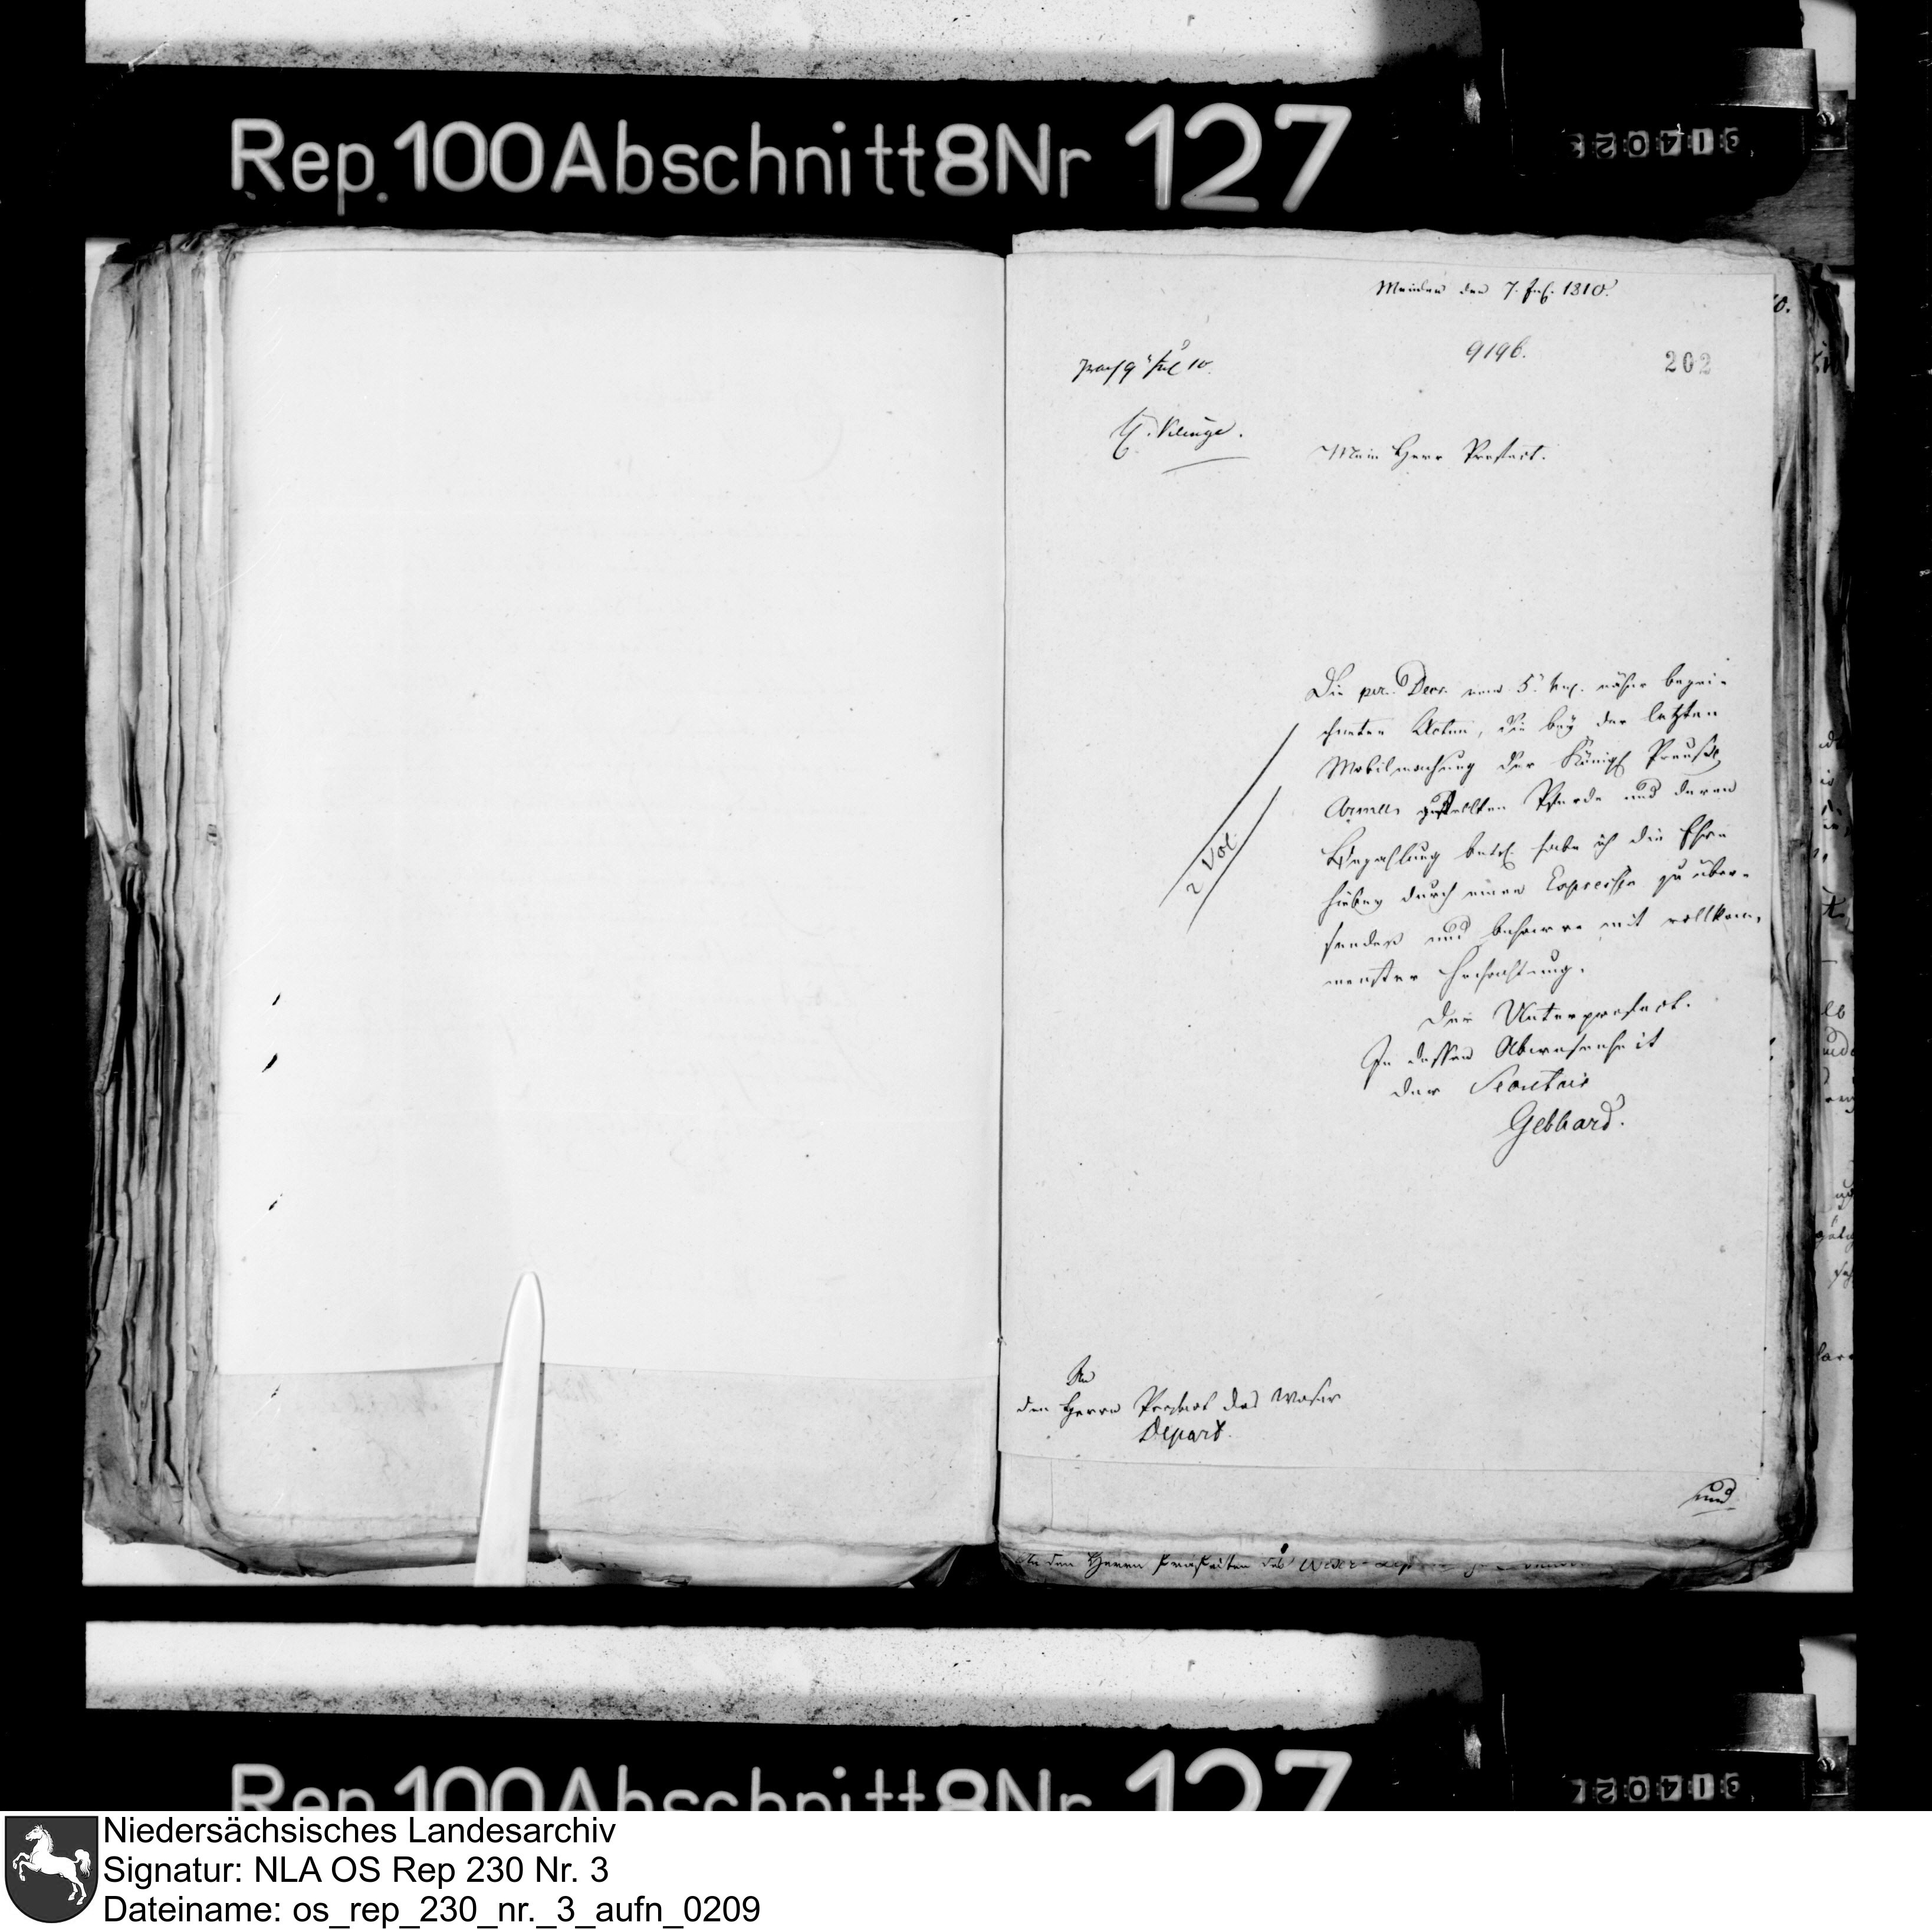 Rep. 100 Abschnitt 8 Nr 127
Minden den 7. Jul. 1810.
9196.
202
praes 9 Jul 10.
Mein Herr Praefect.
Die per Decr. vom 5. näher bezei-
chneten Acten, die bey der letzten
Mobilmachung der Königl Preuß
Armee gestellten Pferde und deren
Bezahlung betr. habe ich die Ehre
hiebey durch einen Expressen zu über-
senden und beharre mit vollkom-
menster Hochachtung.
2 Vol
Der Unterpraefect.
In dessen Abwesenheit
der Secretair
Gebhard.
An
den Herrn Praefect des Weser
Depart.
und
An den Herrn Präfekten des Weser
Rep. 100 Abschnitt 8 Nr 127
Niedersächsisches Landesarchiv
Signatur: NLA OS Rep 230 Nr. 3
Dateiname: os_rep_230_nr._3_aufn_0209